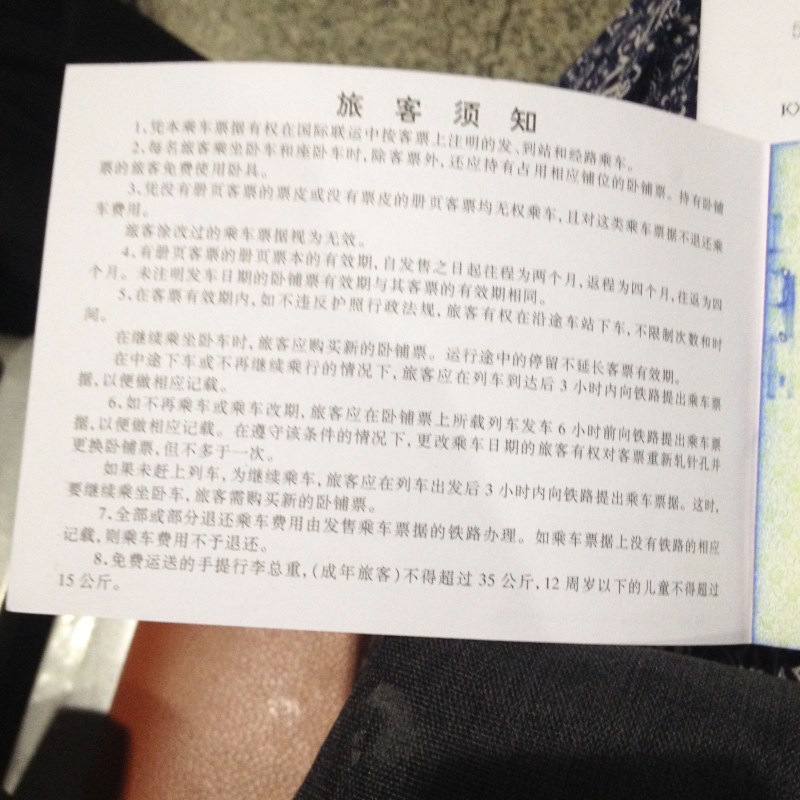 旅客须知
1、凭本乘车票据有权在国际联运中按客票上注明的发、到站和经路乘车。
2、每名旅客乘坐卧车和座卧车时，除客票外，还应持有占用相应铺位的卧铺票。持有卧铺
票的旅客免费使用卧具。
3、凭没有册页客票的票皮或没有票皮的册页客票均无权乘车，且对这类乘车票据不退还乘
车费用。
旅客涂改过的乘车票据视为无效。
4、有册页客票的册页票本的有效期，自发售之日起往程为两个月，返程为四个月，往返为四
个月。未注明发车日期的卧铺票有效期与其客票的有效期相同。
5、在客票有效期内，如不违反护照行政法规，旅客有权在沿途车站下车，不限制次数和时
间。
在继续乘坐卧车时，旅客应购买新的卧铺票。运行途中的停留不延长客票有效期。
在中途下车或不再继续乘行的情况下，旅客应在列车到达后 3 小时内向铁路提出乘车票
据，以便做相应记载。
6、如不再乘车或乘车改期，旅客应在卧铺票上所载列车发车 6 小时前向铁路提出乘车票
据，以便做相应记载。在遵守该条件的情况下，更改乘车日期的旅客有权对客票重新轧针孔并
更换卧铺票，但不多于一次。
如果未赶上列车，为继续乘车，旅客应在列车出发后 3 小时内向铁路提出乘车票据。这时，
要继续乘坐卧车，旅客需购买新的卧铺票。
7、全部或部分退还乘车费用由发售乘车票据的铁路办理。如乘车票据上没有铁路的相应
记载，则乘车费用不予退还。
8、免费运送的手提行李总重，(成年旅客)不得超过 35 公斤，12 周岁以下的儿童不得超过
15 公斤。